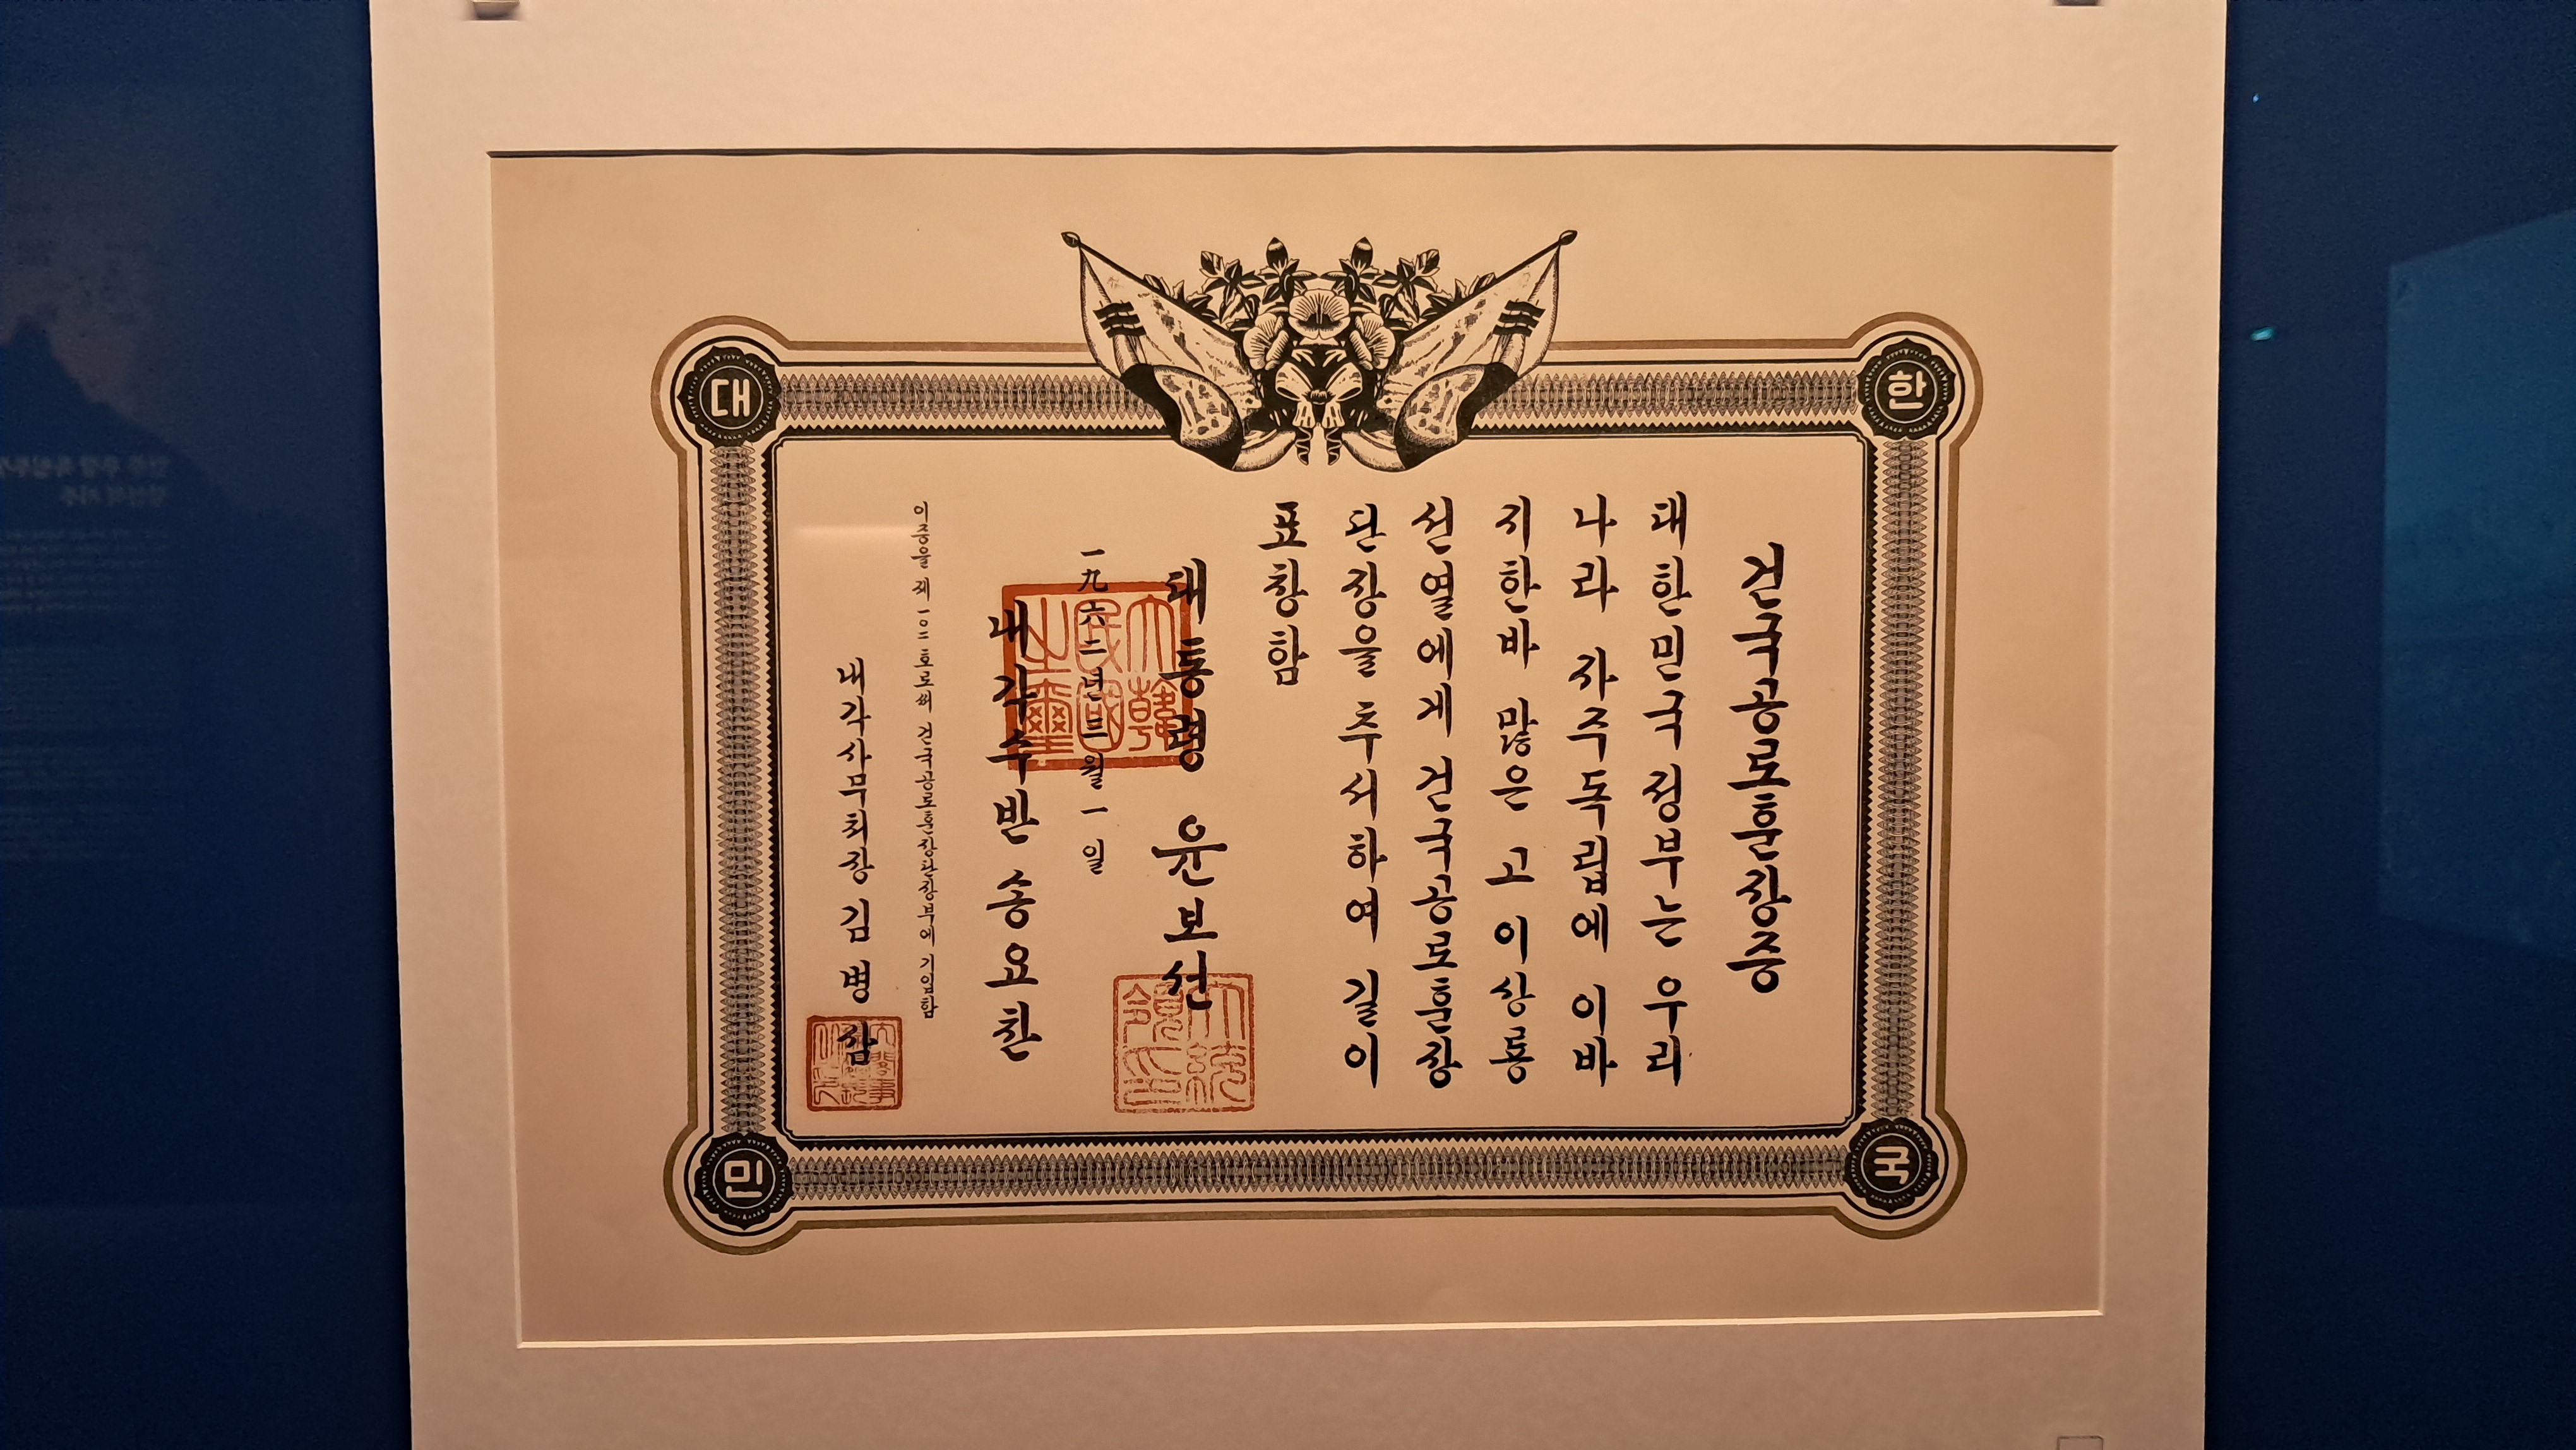 대 한
민 국
건국공로훈장증
대한민국 정부는 우리
나라 자주독립에 이바
지한바 많은 고 이상룡
선열에게 건국공로훈장
단장을 추서하여 길이
표창함
대통령 윤보선
一九六二년 三월 一일
내각수반 송요찬
이증을 제 一〇二호로써 건국공로훈장단장부에 기입함
내각사무처장 김병삼
大韓民國之璽
大統領之印